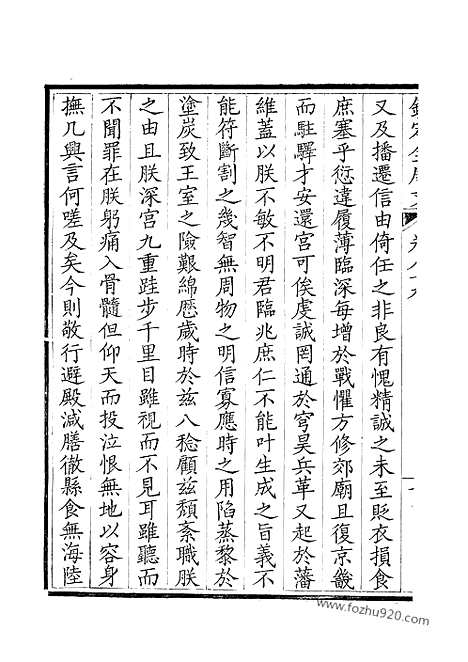 又及播遷信由倚任之非良有愧精誠之未至貶衣損食
庶塞乎愆違履薄臨深每增於戰懼方修郊廟且復京畿
而駐驛才安還宮可俟虔誠罔通於穹昊兵革又起於藩
維蓋以朕不敏不明君臨兆庶仁不能叶生成之旨義不
能符斷割之幾智無周物之明信寡應時之用陷蒸黎於
塗炭致王室之險艱綿歷歲時於兹八稔顧兹頹紊職朕
之由且朕深宮九重跬步千里目雖視而不見耳雖聽而
不聞罪在朕躬痛入骨髓但仰天而投泣恨無地以容身
撫几興言何嗟及矣今則敬行避殿減膳徹縣食無海陸
www.fozhu920.com